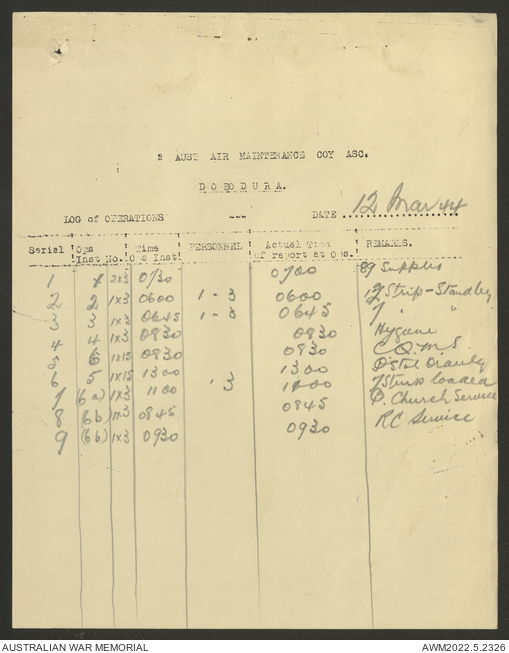 2 AUST AIR MAINTENANCE COY ASC.
DOBODURA.
LOG of OPERATIONS --- DATE 12 Mar 44
Serial Ops Inst No. Time Ops Inst PERSONNEL Actual Time of report at Ops. REMARKS.
1 2x3 0730 0700 89 Supplies
2 2 1x3 0600 1-3 0600 12 Strip-Standby
3 3 1x3 0645 1-3 0645 7 " "
4 4 1x3 0830 0830 Hygiene
5 6 1x15 0830 0830 C.Q.M.S.
6 5 1x15 1300 1300
7 6a) 1x3 1100 3 1100 loaded
8 (6b) 1x3 0845 0845 P. Church Service
9 (6b) 1x3 0930 0930 RC Service
AUSTRALIAN WAR MEMORIAL AWM2022.5.2326